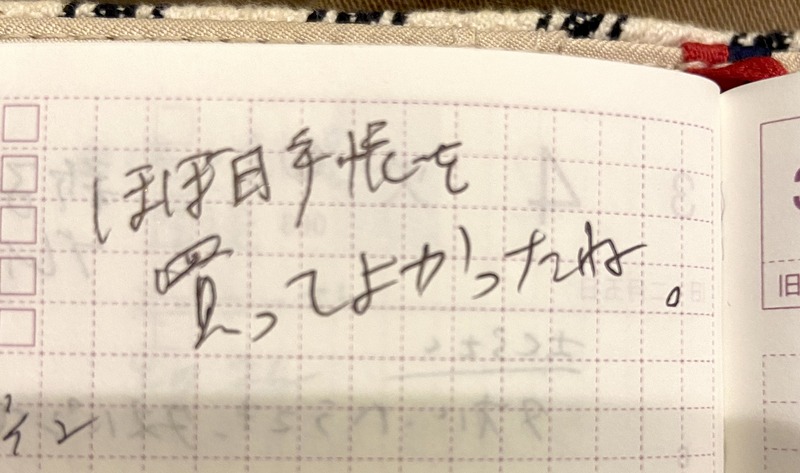 ほぼ日手帳を
買ってよかったね。
旧